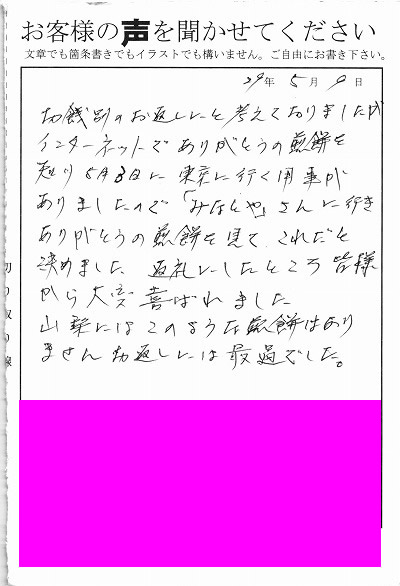 お客様の声を聞かせてください
文章でも箇条書きでもイラストでも構いません。ご自由にお書き下さい。
29年5月9日
お餞別のお返しにと考えておりましたが
インターネットでありがとうの煎餅を
知り5月3日に東京に行く用事が
ありましたので「みなとや」さんに行き
ありがとうの煎餅を見て、これだと
決めました 返礼にしたところ皆様
から大変喜ばれました
山梨にはこのような煎餅はあり
ません お返しには最適でした。
切り取り線